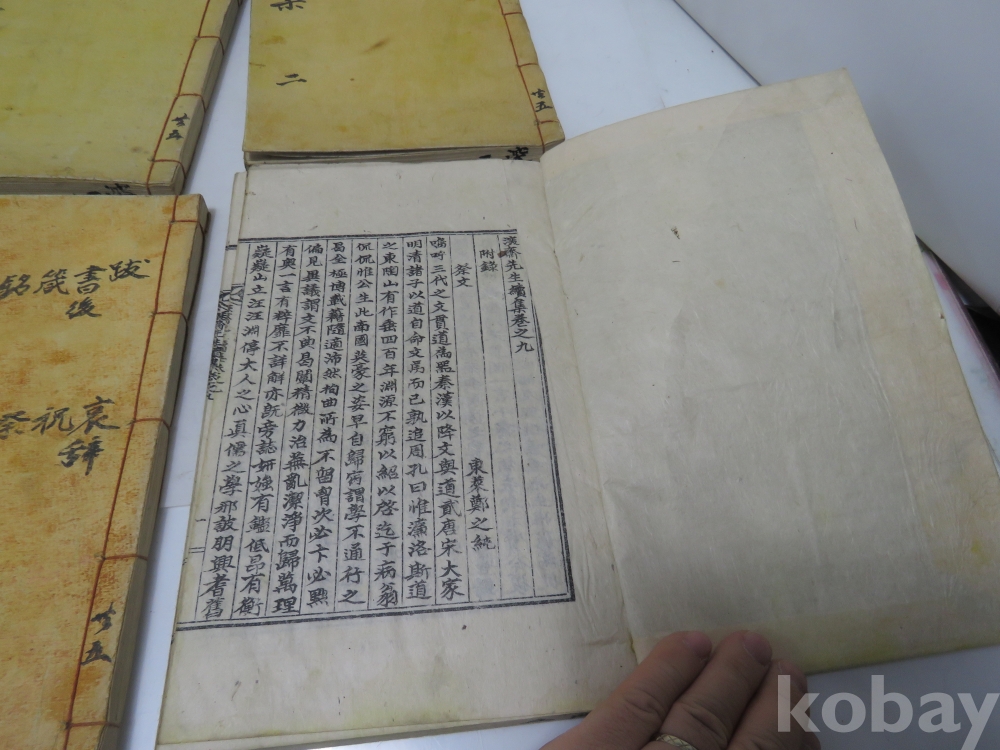 漢齋先生續集卷之九
附錄
祭文
東萊鄭之純
嗚呼三代之文貫道爲器秦漢以降文與道貳唐宋大家
明清諸子以道自命文焉而已孰追周孔曰惟濂洛斷道
之東陶山有作垂四百年淵源不窮以紹以啓迄于病翁
侃侃惟公生此南國英豪之姿早自歸宿謂學不通行之
曷全極博載籍隨適沛然徇曲所為不留胷次必卞必黜
偏見異議謂文不典曷闡精微力治蕪亂潔淨而歸萬理
有與一言有粹靡不詳解亦旣旁誌妍媸有鑑低昂有衡
嶷嶷山立汪汪淵停大人之心眞儒之學那設朋興耆舊
二
共五
共五
跋
書後
箴
銘
哀辭
祝
祭
共五
kobay